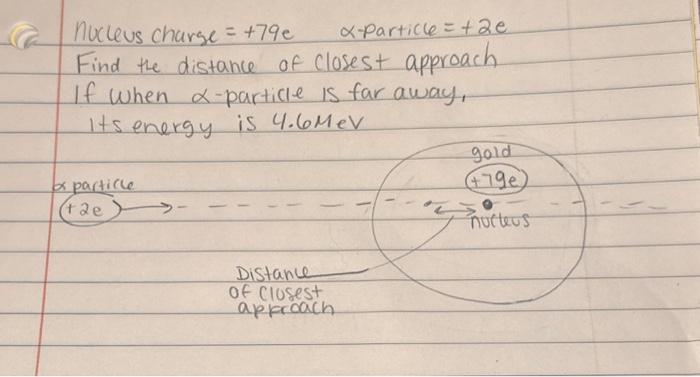 nucleus charge = +79e   α-Particle = +2e
Find the distance of closest approach
If when α-particle is far away,
its energy is 4.6MeV
gold
+79e
α particle
+2e
nucleus
Distance
of closest
approach